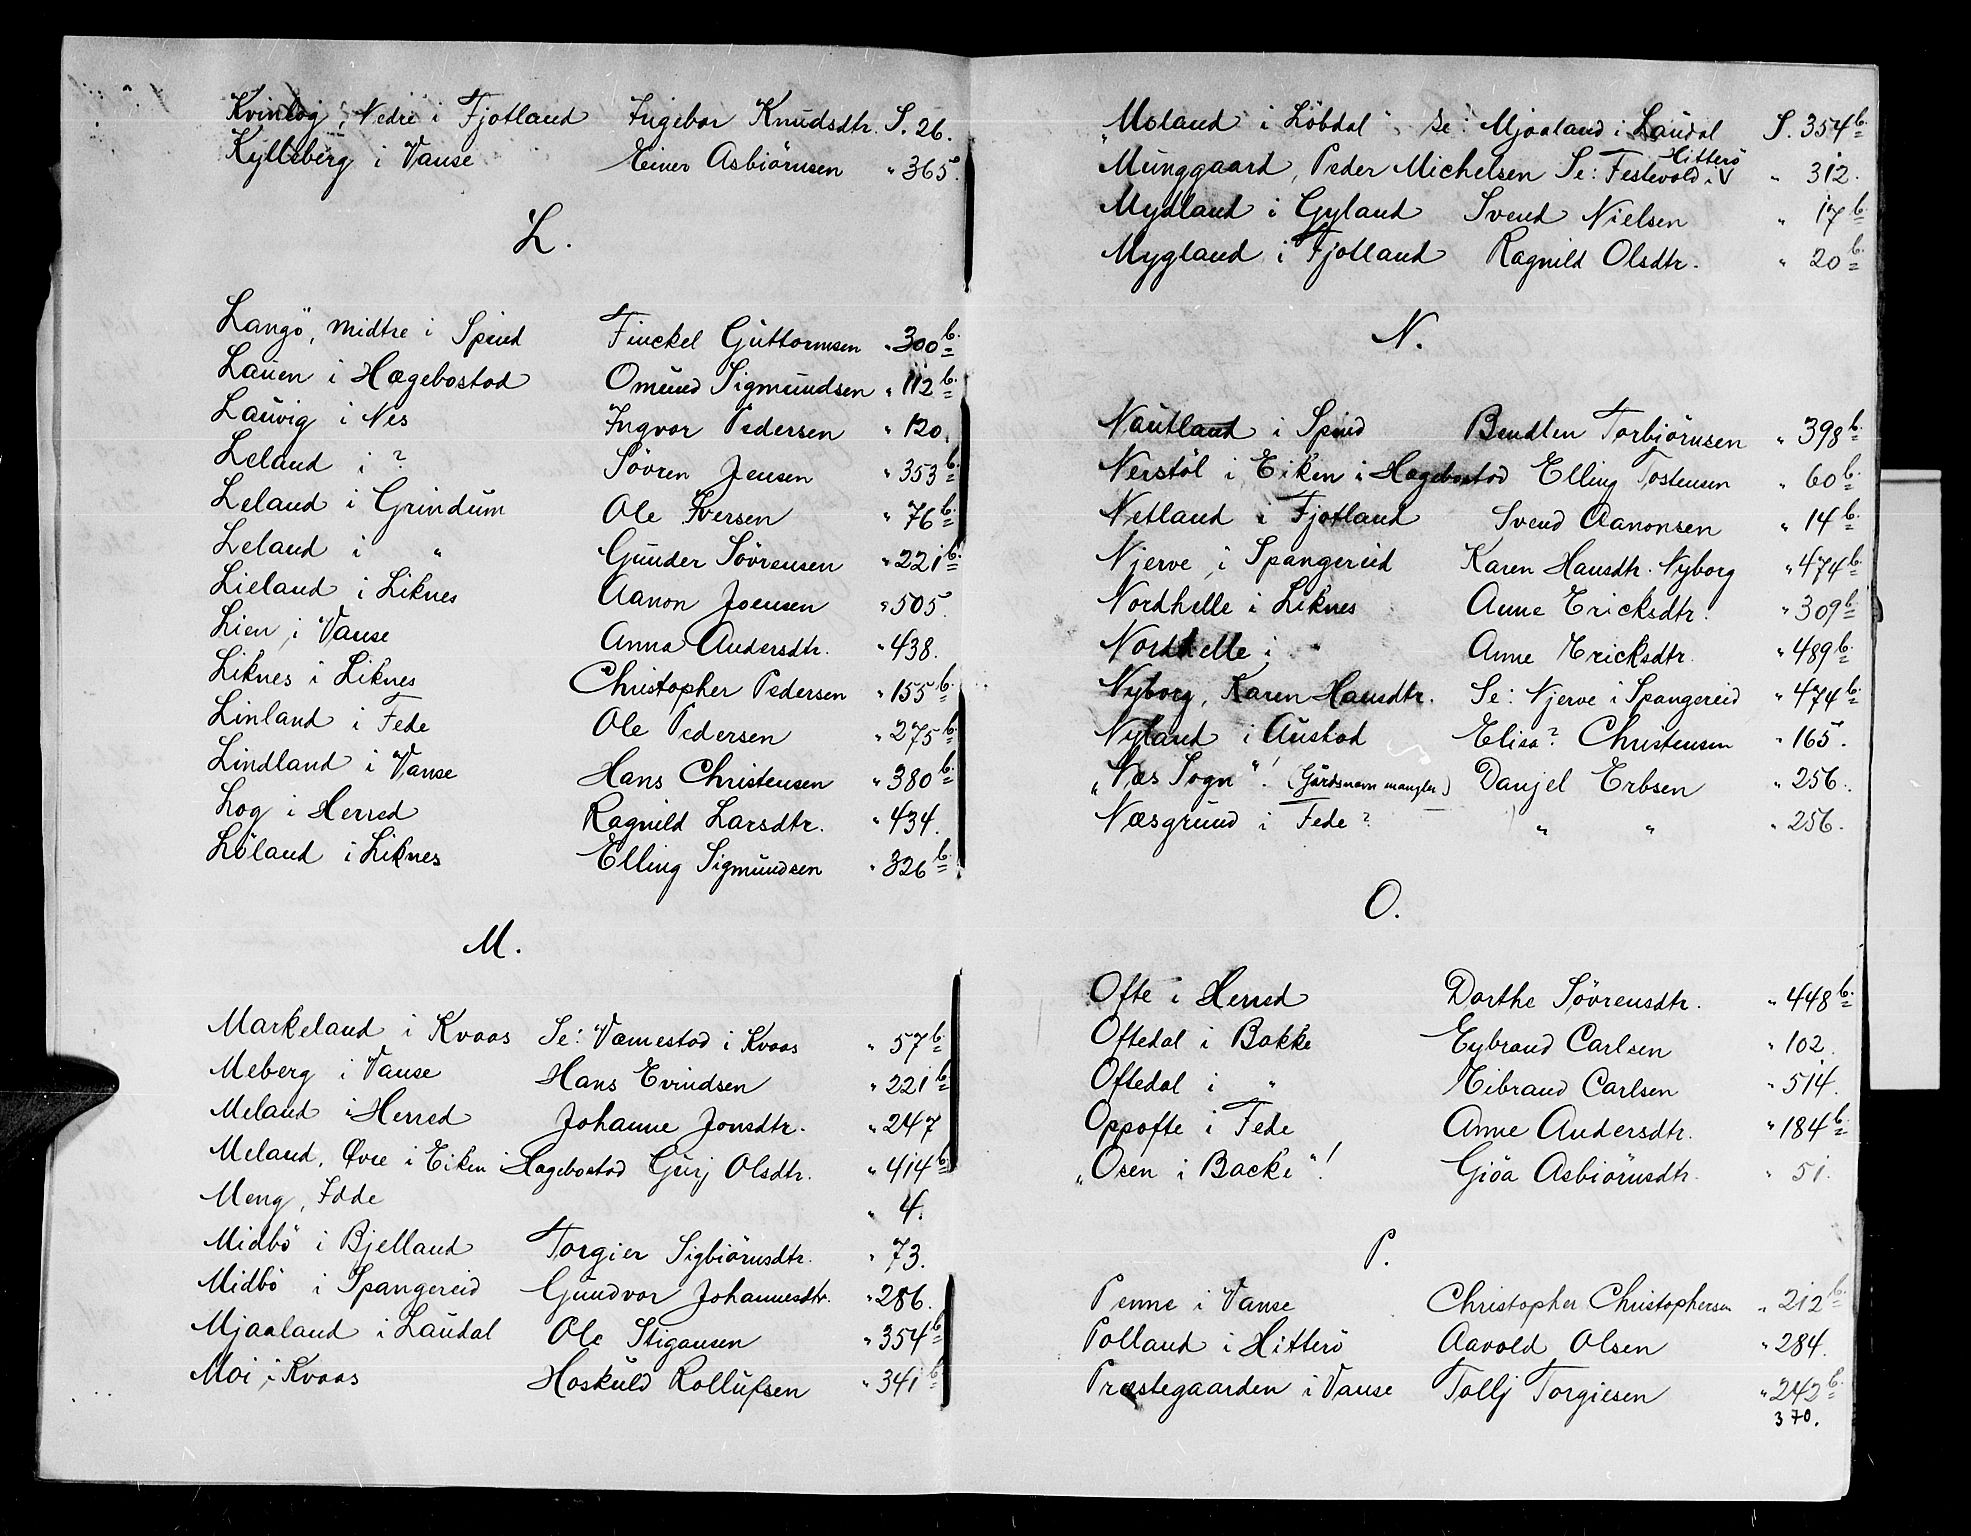 Kvinlog, Nedre i Fjotland Ingebor Knudsdtr. S. 26.
Kylleberg i Vanse Einer Asbiörnsen " 365.
L.
Langö, midtre i Spind Finckel Guttormsen " 300 b.
Lauen i Hægebostad Omund Sigmundsen " 112 b.
Lauvig i Nes Ingvor Pedersen " 120.
Leland i ? Sövren Jensen " 353 b.
Leland i Grindum Ole Iversen " 76 b.
Leland i " Gunder Sövrensen " 221 b.
Lieland i Liknes Aanon Joensen " 505.
Lien i Vanse Anna Andersdtr. " 438.
Liknes i Liknes Christopher Pedersen " 155 b.
Linland i Fede Ole Pedersen " 275 b.
Lindland i Vanse Hans Christensen " 380 b.
Log i Herred Ragnild Larsdtr. " 434.
Löland i Liknes Elling Sigmundsen " 326 b.
M.
Markeland i Kvaas Se: Væmestad i Kvaas " 57 b.
Meberg i Vanse Hans Evindsen " 221 b.
Meland i Herred Johanne Jonsdtr. " 247
Meland, Øvre i Eiken i Hægebostad Gurj Olsdtr. " 414 b.
Meng, Idde " 4.
Midbö i Bjelland Torgier Sigbiörnsdtr. " 73.
Midbö i Spangereid Gundvor Johannesdtr. " 286.
Mjaaland i Laudal Ole Stigansen " 354 b.
Moi i Kvaas Hoskuld Rollufsen " 341 b.
"Moland i Löbdal" se: Mjaaland i Laudal S. 354 b.
Munggaard, Peder Michelsen Se: Festevold i Hitterö " 312.
Mydland i Gyland Svend Nielsen " 17 b.
Mygland i Fjotland Ragnild Olsdtr. " 20 b.
N.
Nautland i Spind Bendten Torbjörnsen " 398 b.
Nerstöl i Eiken i Hægebostad Elling Tostensen " 60 b.
Netland i Fjotland Svend Aanonsen " 14 b.
Njerve i Spangereid Karen Hansdtr. Nyborg " 474 b.
Nordhelle i Liknes Anne Ericksdtr. " 309 b.
Nordhelle i " Anne Ericksdtr. " 489 b.
Nyborg, Karen Hansdtr. Se: Njerve i Spangereid " 474 b.
Nyland i Austad Elisa? Christensen " 165.
"Næs Sogn"! (Gårdsnavn mangler) Danjel Erbsen " 256.
Næsgrund i Fede? " " " 256.
O.
Ofte i Herred Dorthe Sövrensdtr. " 448 b.
Oftedal i Bakke Eybrand Carlsen " 102.
Oftedal i " Eibrand Carlsen " 514.
Oppofte i Fede Anne Andersdtr. " 184 b.
"Osen i Backe"! Giöa Asbiörnsdtr. " 51.
P.
Penne i Vanse Christopher Christophersen " 212 b.
Polland i Hitterö Aavold Olsen " 284.
Præstegaarden i Vanse Tollj Torgiesen " 242 b.
370.